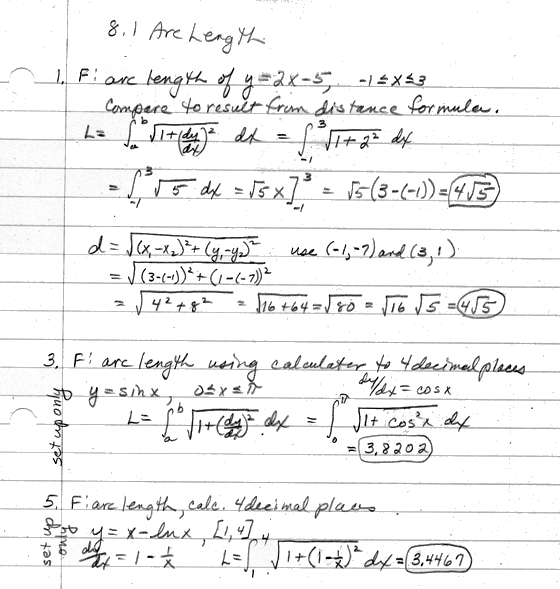 8.1 Arc Length
1. F: arc length of y = 2x-5, -1≤x≤3
Compare to result from distance formula.
L= ∫_a^b √(1+(dy/dx)²) dx = ∫_-1^3 √(1+2²) dx
= ∫_-1^3 √5 dx = √5 x]_-1^3 = √5(3-(-1)) = 4√5
d = √((x₁-x₂)²+(y₁-y₂)²) use (-1,-7) and (3,1)
= √((3-(-1))²+(1-(-7))²)
= √(4²+8²) = √(16+64) = √80 = √16 √5 = 4√5
3. F: arc length using calculater to 4 decimal places
set up only
y = sin x, 0≤x≤π dy/dx = cos x
L= ∫_a^b √(1+(dy/dx)²) dx = ∫_0^π √(1+cos²x) dx
= 3.8202
5. F: arc length, calc. 4 decimal places
set up only
y = x-ln x, [1,4]
dy/dx = 1-1/x L= ∫_1^4 √(1+(1-1/x)²) dx = 3.4467